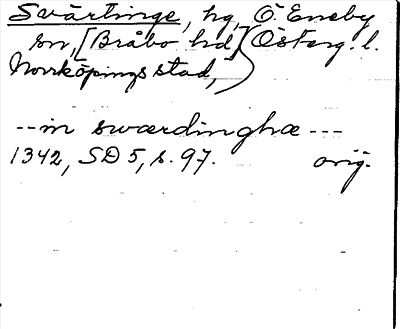 Svärtinge, hg, Ö. Eneby
sn, [Bråbo hd] Österg. l.
Norrköpings stad,
-- in swærdinghæ ---
1342, SD 5, s. 97. orig.